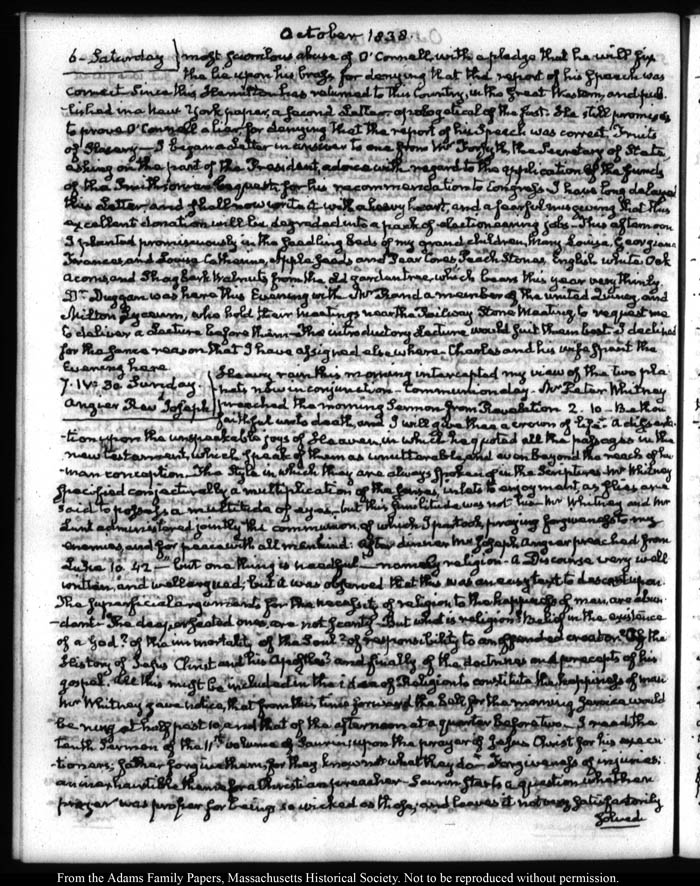 October 1838.
6 - Saturday } most scurrilous abuse of O'Connell, with a pledge that he will fix
the lie upon his brazs for denying that the report of his Speech was
correct. Since this Hamilton has returned to this Country, in the Great Western, and pub-
-lished in a New York paper, a second Letter apologetical of the first. He still promises
to prove O'Connell a liar, for denying that the report of his Speech was correct. Fruits
of Slavery — I began a Letter in answer to one from Mr Forsyth the Secretary of State
asking on the part of the President, advice with regard to the application of the funds
of the Smithsonian bequest, for his recommendation to Congress. I have long delayed
this Letter and shall now write it with a heavy heart, and a fearful misgiving that this
excellent donation will be degraded into a pack of electioneering jobs — This afternoon
I planted promiscuously in the seedling beds of my grand children, Mary Louisa, Georgiana
Frances, and Louisa Catherine, Apple seeds and Pear Cores, Peach Stones, English white Oak
Acorns, and Shagbark Walnuts from the old garden tree, which bears this year very thinly
Dr Duggan was here this Evening with Mr Rand a member of the united Quincy and
Milton Lyceum, who hold their meetings near the Railway Stone Meeting, to request me
to deliver a Lecture before them — The introductory Lecture would suit them best. I declined
for the same reason that I have assigned elsewhere — Charles and his wife spent the
Evening here
7. IV: 30 Sunday
Angier Rev Joseph } Heavy rain this morning intercepted my view of the two pla-
nets now in conjunction — Communion day. Mr Peter Whitney
preached the morning Sermon from Revelation 2. 10 — Be thou
faithful unto death, and I will give thee a crown of life. A disserta-
-tion upon the unspeakable joys of Heaven, in which he quoted all the passages in the
new testament, which speak of them as unutterable and even beyond the reach of hu-
-man conception. The Style in which they are always spoken of in the Scriptures Mr Whitney
specified conjecturally a multiplication of the senses, inlets to enjoyment, as flies are
said to possess a multitude of eyes — but this similitude was not his — Mr Whitney and Mr
Lunt administered jointly the communion, of which I partook, praying forgiveness to my
enemies, and for peace with all mankind. After dinner Mr Joseph Angier preached from
Luke 10. 42 — but one thing is needful — namely religion — A Discourse very well
written, and well argued; but it was observed that this was an easy text to descant upon.
The superficial arguments for the necessity of religion to the happiness of man, are abun-
-dant — The deeper seated ones, are not scanty. But what is religion? Belief in the existence
of a God? of the immortality of the Soul? of responsibility to an offended creator? Of the
History of Jesus Christ and his Apostles? and finally of the doctrines and precepts of his
gospel. All this must be included in the idea of Religion to constitute the happiness of man
Mr Whitney gave notice, that from this time forward the Bell for the morning Service would
be rung at half past 10, and that of the afternoon at a quarter before two — I read the
tenth Sermon of the 11th volume of Saurin, upon the prayer of Jesus Christ for his execu-
-tioners; father forgive them, for they know not what they do — Forgiveness of injuries:
an inexhaustible theme for a Christian preacher — Saurin starts a question whether
prayer was proper for beings so wicked as these, and leaves it not very satisfactorily
solved
From the Adams Family Papers, Massachusetts Historical Society. Not to be reproduced without permission.